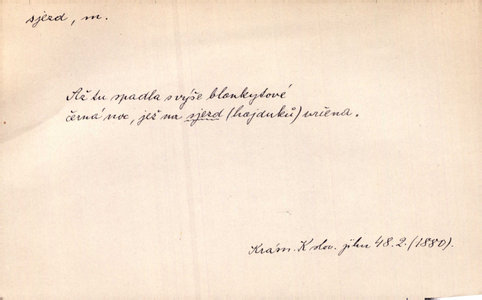 sjezd, m.
Až tu spadla s výše blankytové
černá noc, jež na sjezd (hajduků) určena.
Krám. K slov. jihu 48.2. (1880).